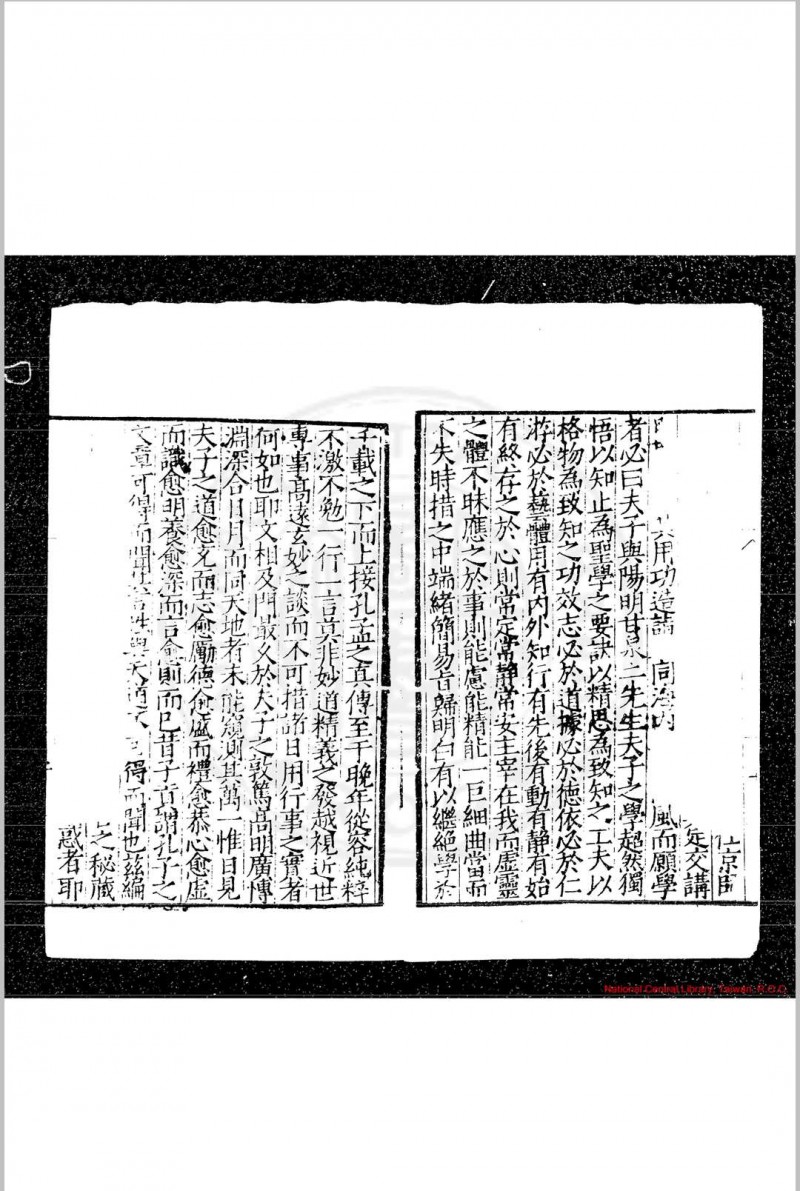 京
定交講
其用功造詣 同海內 風而願學
者必曰夫子與陽明甘泉二先生夫子之學超然獨
悟以知止為聖學之要訣以精思為致知之工夫以
格物為致知之功效志必於道據必於德依必於仁
游必於藝體用有內外知行有先後有動有靜有始
有終存之於心則常定常靜常安主宰在我而虛靈
之體不昧應之於事則能慮能精能一巨細曲當而
不失時措之中端緒簡易旨歸明白有以繼絕學於
千載之下而上接孔孟之真傳至于晚年從容純粹
不激不勉一行一言莫非妙道精義之發越視近世
專事高遠玄妙之談而不可措諸日用行事之實者
何如也耶文相及門最久於夫子之敦篤高明廣博
淵深合日月而同天地者未能窺測其萬一惟日見
夫子之道愈充而志愈勵德愈盛而禮愈恭心愈虛
而識愈明養愈深而言愈則而已昔子貢謂孔子之
文章可得而聞 性與天道不可得而聞也茲編
之秘藏
惑者耶
National Central Library, Taiwan, R.O.C